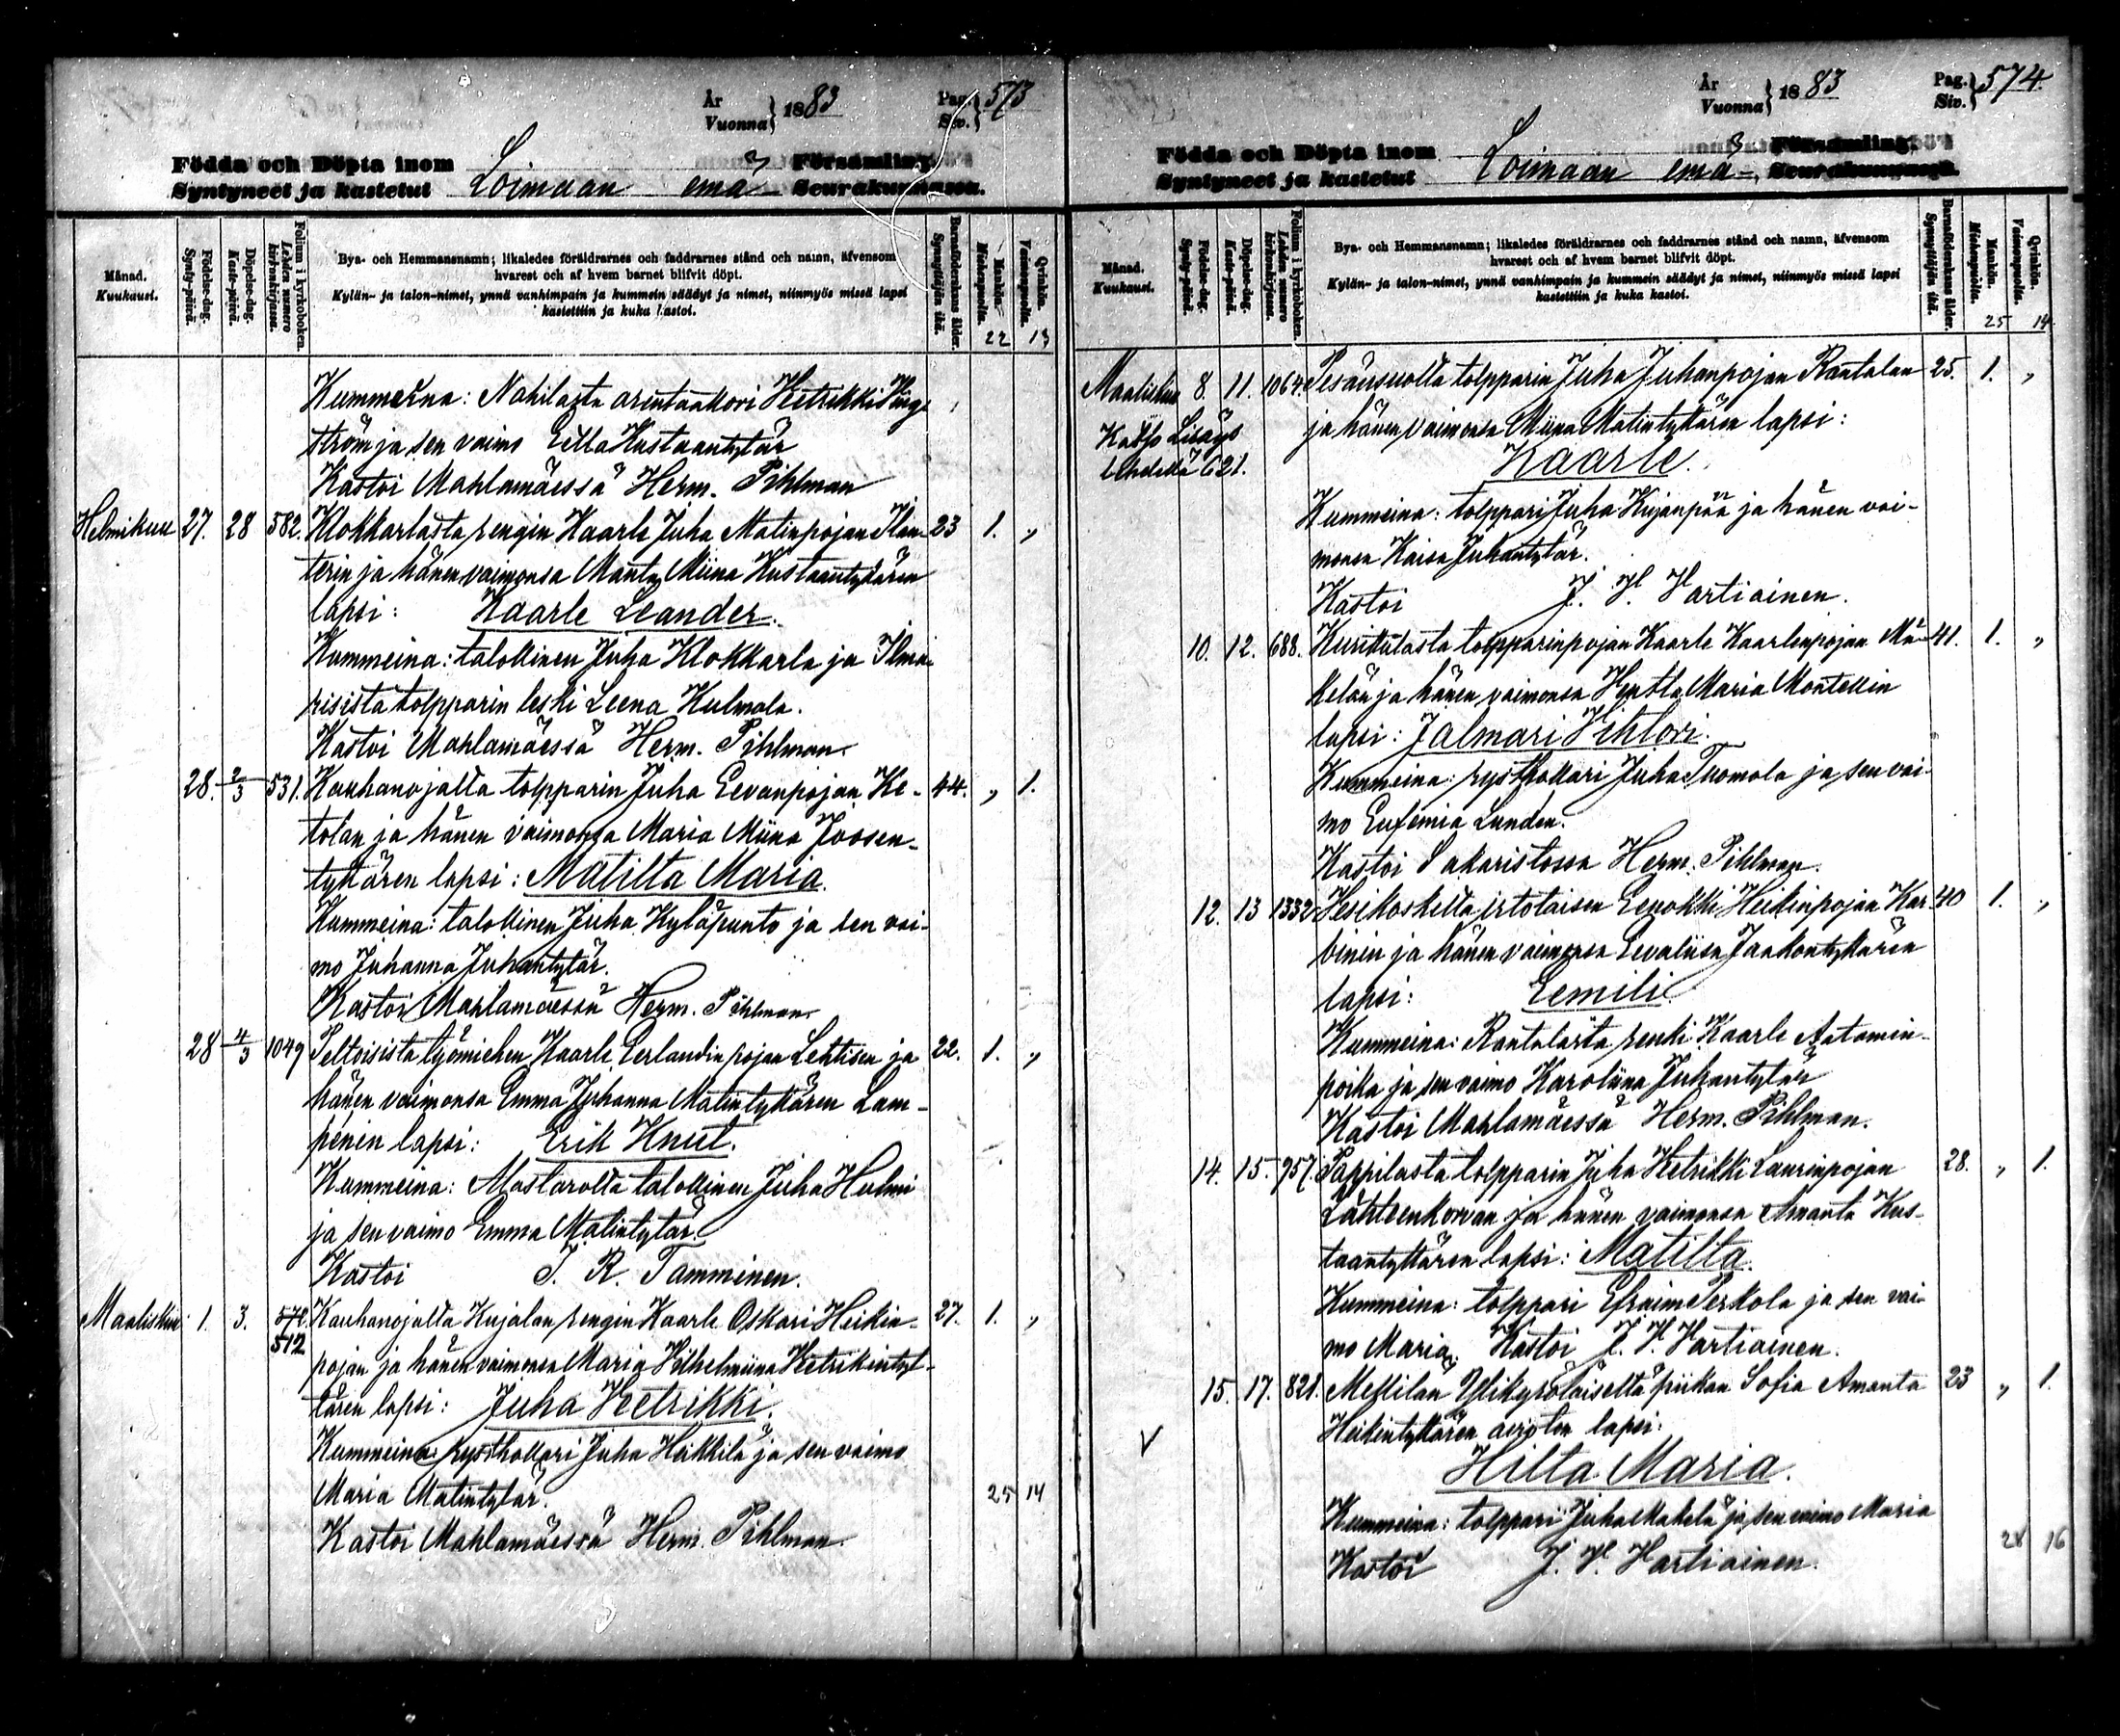 År
Vuonna } 1883
Pag.
Siv. } 573
Födda och Döpta inom Församling
Syntyneet ja kastetut Loimaan emä Seurakunnassa.
Månad.
Kuukausi.
Födelse-dag.
Synty-päivä.
Döpelse-dag.
Kaste-päivä.
Folium i kyrkoboken.
Lehden numero kirkonkirjassa.
Bya- och Hemmansnamn; likaledes föräldrarnes och faddrarnes stånd och namn, äfvensom
hvarest och af hvem barnet blifvit döpt.
Kylän- ja talon-nimet, ynnä vanhimpain ja kummein säädyt ja nimet, niinmyös missä lapsi
kastettiin ja kuka kastoi.
Barnaföderskans ålder.
Synnyttäjän ikä.
Mankön.
Miehenpuolia.
Qvinkön.
Vaimonpuolia.
22 13
Kummeina: Nahilasta arentaatori Hetrikki
ström ja sen vaimo Eetla Kustaantytär
Kastoi Mahlamäessä Herm. Pihlman
Helmikuu 27. 28 582. Klokkarlasta rengin Kaarle Juha Matinpojan Ilan- 23 1. „
terin ja hänen vaimonsa Manta Miina Kustaantyttären
lapsi: Kaarle Leander.
Kummeina: talollinen Juha Klokkarla ja Ilma-
risista tolpparin leski Leena Kulmala.
Kastoi Mahlamäessä Herm. Pihlman.
28. 2/3 531. Kauhanojalta tolpparin Juha Eevanpojan Ke- 44. „ 1.
tolan ja hänen vaimonsa Maria Miina Joosen-
tyttären lapsi: Matilta Maria.
Kummeina: talollinen Juha Kyläpunto ja sen vai-
mo Juhanna Juhantytär.
Kastoi Mahlamäessä Herm. Pihlman
28 4/3 1049 Peltoisista työmiehen Kaarle Eerlandin pojan Lehtisen ja 22. 1. „
hänen vaimonsa Emma Juhanna Matintyttären Lam-
penin lapsi: Erik Knut.
Kummeina: Mastarolta talollinen Juha Hulmi
ja sen vaimo Emma Matintytär.
Kastoi T. R. Tamminen.
Maaliskuu 1. 3. 572. Kauhanojalta Kujalan rengin Kaarle Oskari Heikin- 27. 1. „
512
pojan ja hänen vaimonsa Maria Vilhelmiina Hetrikintyt-
tären lapsi: Juha Hetrikki.
Kummeina: rysthollari Juha Heikkilä ja sen vaimo
Maria Matintytär.
25 14
Kastoi Mahlamäessä Herm. Pihlman.
År
Vuonna } 1883
Pag.
Siv. } 574.
Födda och Döpta inom Församling
Syntyneet ja kastetut Loimaan emä- Seurakunnassa.
Månad.
Kuukausi.
Födelse-dag.
Synty-päivä.
Döpelse-dag.
Kaste-päivä.
Folium i kyrkoboken.
Lehden numero kirkonkirjassa.
Bya- och Hemmansnamn; likaledes föräldrarnes och faddrarnes stånd och namn, äfvensom
hvarest och af hvem barnet blifvit döpt.
Kylän- ja talon-nimet, ynnä vanhimpain ja kummein säädyt ja nimet, niinmyös missä lapsi
kastettiin ja kuka kastoi.
Barnaföderskans ålder.
Synnyttäjän ikä.
Mankön.
Miehenpuolia.
Qvinkön.
Vaimonpuolia.
25 14
Maaliskuu 8. 11. 1064. Pesänsuolta tolpparin Juha Juhanpojan Rantalan 25. 1. „
Katso Lisäys
lehdellä 621.
ja hänen vaimonsa Miina Matintyttären lapsi:
Kaarle.
Kummeina: tolppari Juha Kujanpää ja hänen vai-
monsa Kaisa Juhantytär.
Kastoi J. V. Vartiainen.
10. 12. 688. Kurittulasta tolpparinpojan Kaarle Kaarlenpojan Mä- 41. 1. „
kelän ja hänen vaimonsa Hertta Maria Montellin
lapsi: Jalmari Vihtori.
Kummeina: rysthollari Juha Tuomola ja sen vai-
mo Eufemia Lunden.
Kastoi Sakaristossa Herm. Pihlman.
12. 13 1332 Vesikoskelta irtolaisen Eenokki Heikinpojan Kar- 40 1. „
binin ja hänen vaimonsa Eevaliisa Jaakontyttären
lapsi: Eemili.
Kummeina: Rantalasta renki Kaarle Aatamin-
poika ja sen vaimo Karoliina Juhantytär
Kastoi Mahlamäessä Herm. Pihlman.
14. 15. 957. Pappilasta tolpparin Juha Hetrikki Laurinpojan 28. „ 1.
Lähteenkorvan ja hänen vaimonsa Amanta Kus-
taantyttären lapsi: Matilta.
Kummeina: tolppari Efraim Perkola ja sen vai-
mo Maria. Kastoi J. V. Vartiainen.
15. 17. 821. Mellilän Ylikyröläiseltä piikan Sofia Amanta 23 „ 1.
Heikintyttären avioton lapsi:
V
Hilta Maria.
Kummeina: tolppari Juha Mäkelä ja sen vaimo Maria
28 16
Kastoi J. V. Vartiainen.